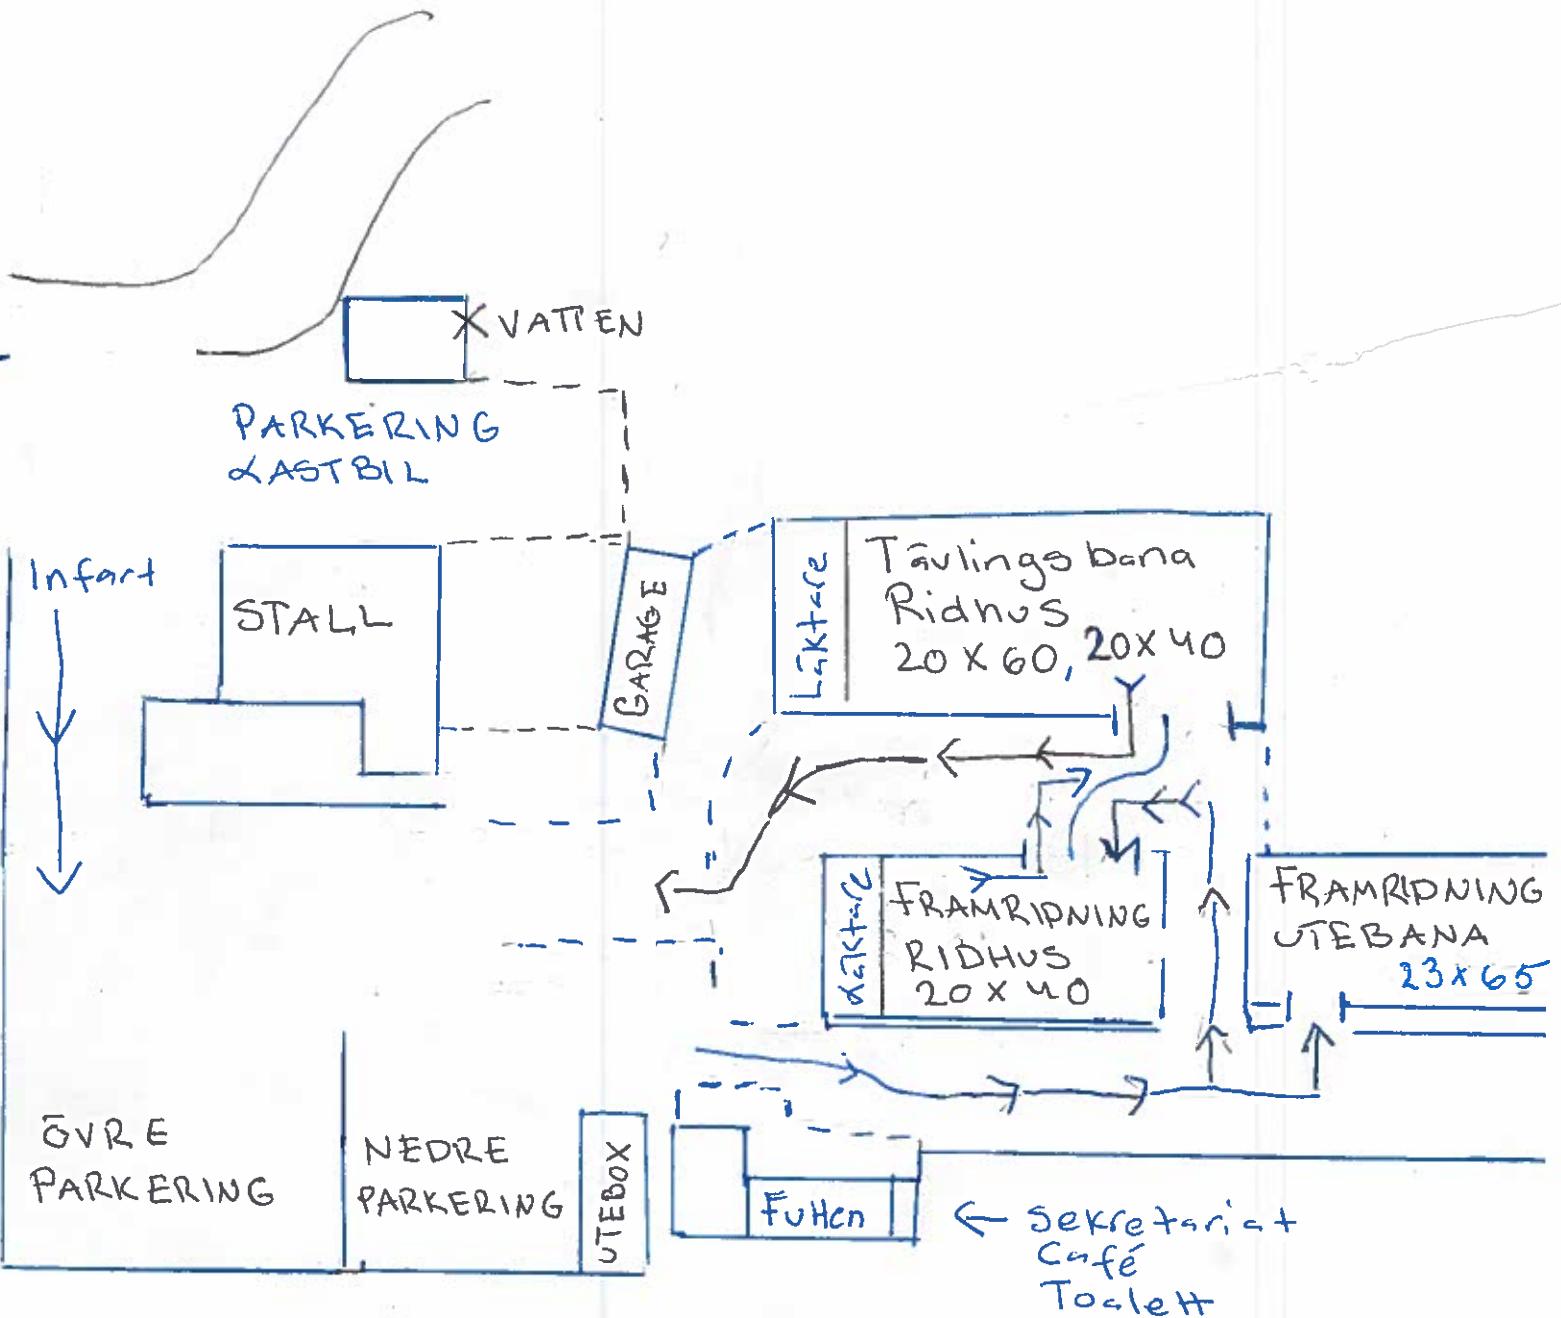 VATTEN
PARKERING
LASTBIL
Infart
STALL
GARAGE
Läktare
Tävlingsbana
Ridhus
20 X 60, 20X40
Läktare
FRAMRIDNING
RIDHUS
20 X 40
FRAMRIDNING
UTEBANA
23 X 65
ÖVRE
PARKERING
NEDRE
PARKERING
UTEBOX
Futten
← Sekretariat
Café
Toalett